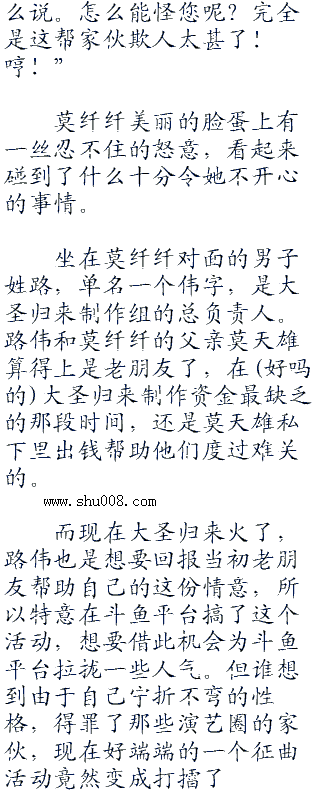 么说。怎么能怪您呢？完全
是这帮家伙欺人太甚了！
哼！”
莫纤纤美丽的脸蛋上有
一丝忍不住的怒意，看起来
碰到了什么十分令她不开心
的事情。
坐在莫纤纤对面的男子
姓路，单名一个伟字，是大
圣归来制作组的总负责人。
路伟和莫纤纤的父亲莫天雄
算得上是老朋友了，在(好吗
的)大圣归来制作资金最缺乏
的那段时间，还是莫天雄私
下里出钱帮助他们度过难关
的。
www.shu008.com
而现在大圣归来火了，
路伟也是想要回报当初老朋
友帮助自己的这份情意，所
以特意在斗鱼平台搞了这个
活动，想要借此机会为斗鱼
平台拉拢一些人气。但谁想
到由于自己宁折不弯的性
格，得罪了那些演艺圈的家
伙，现在好端端的一个征曲
活动竟然变成打擂了